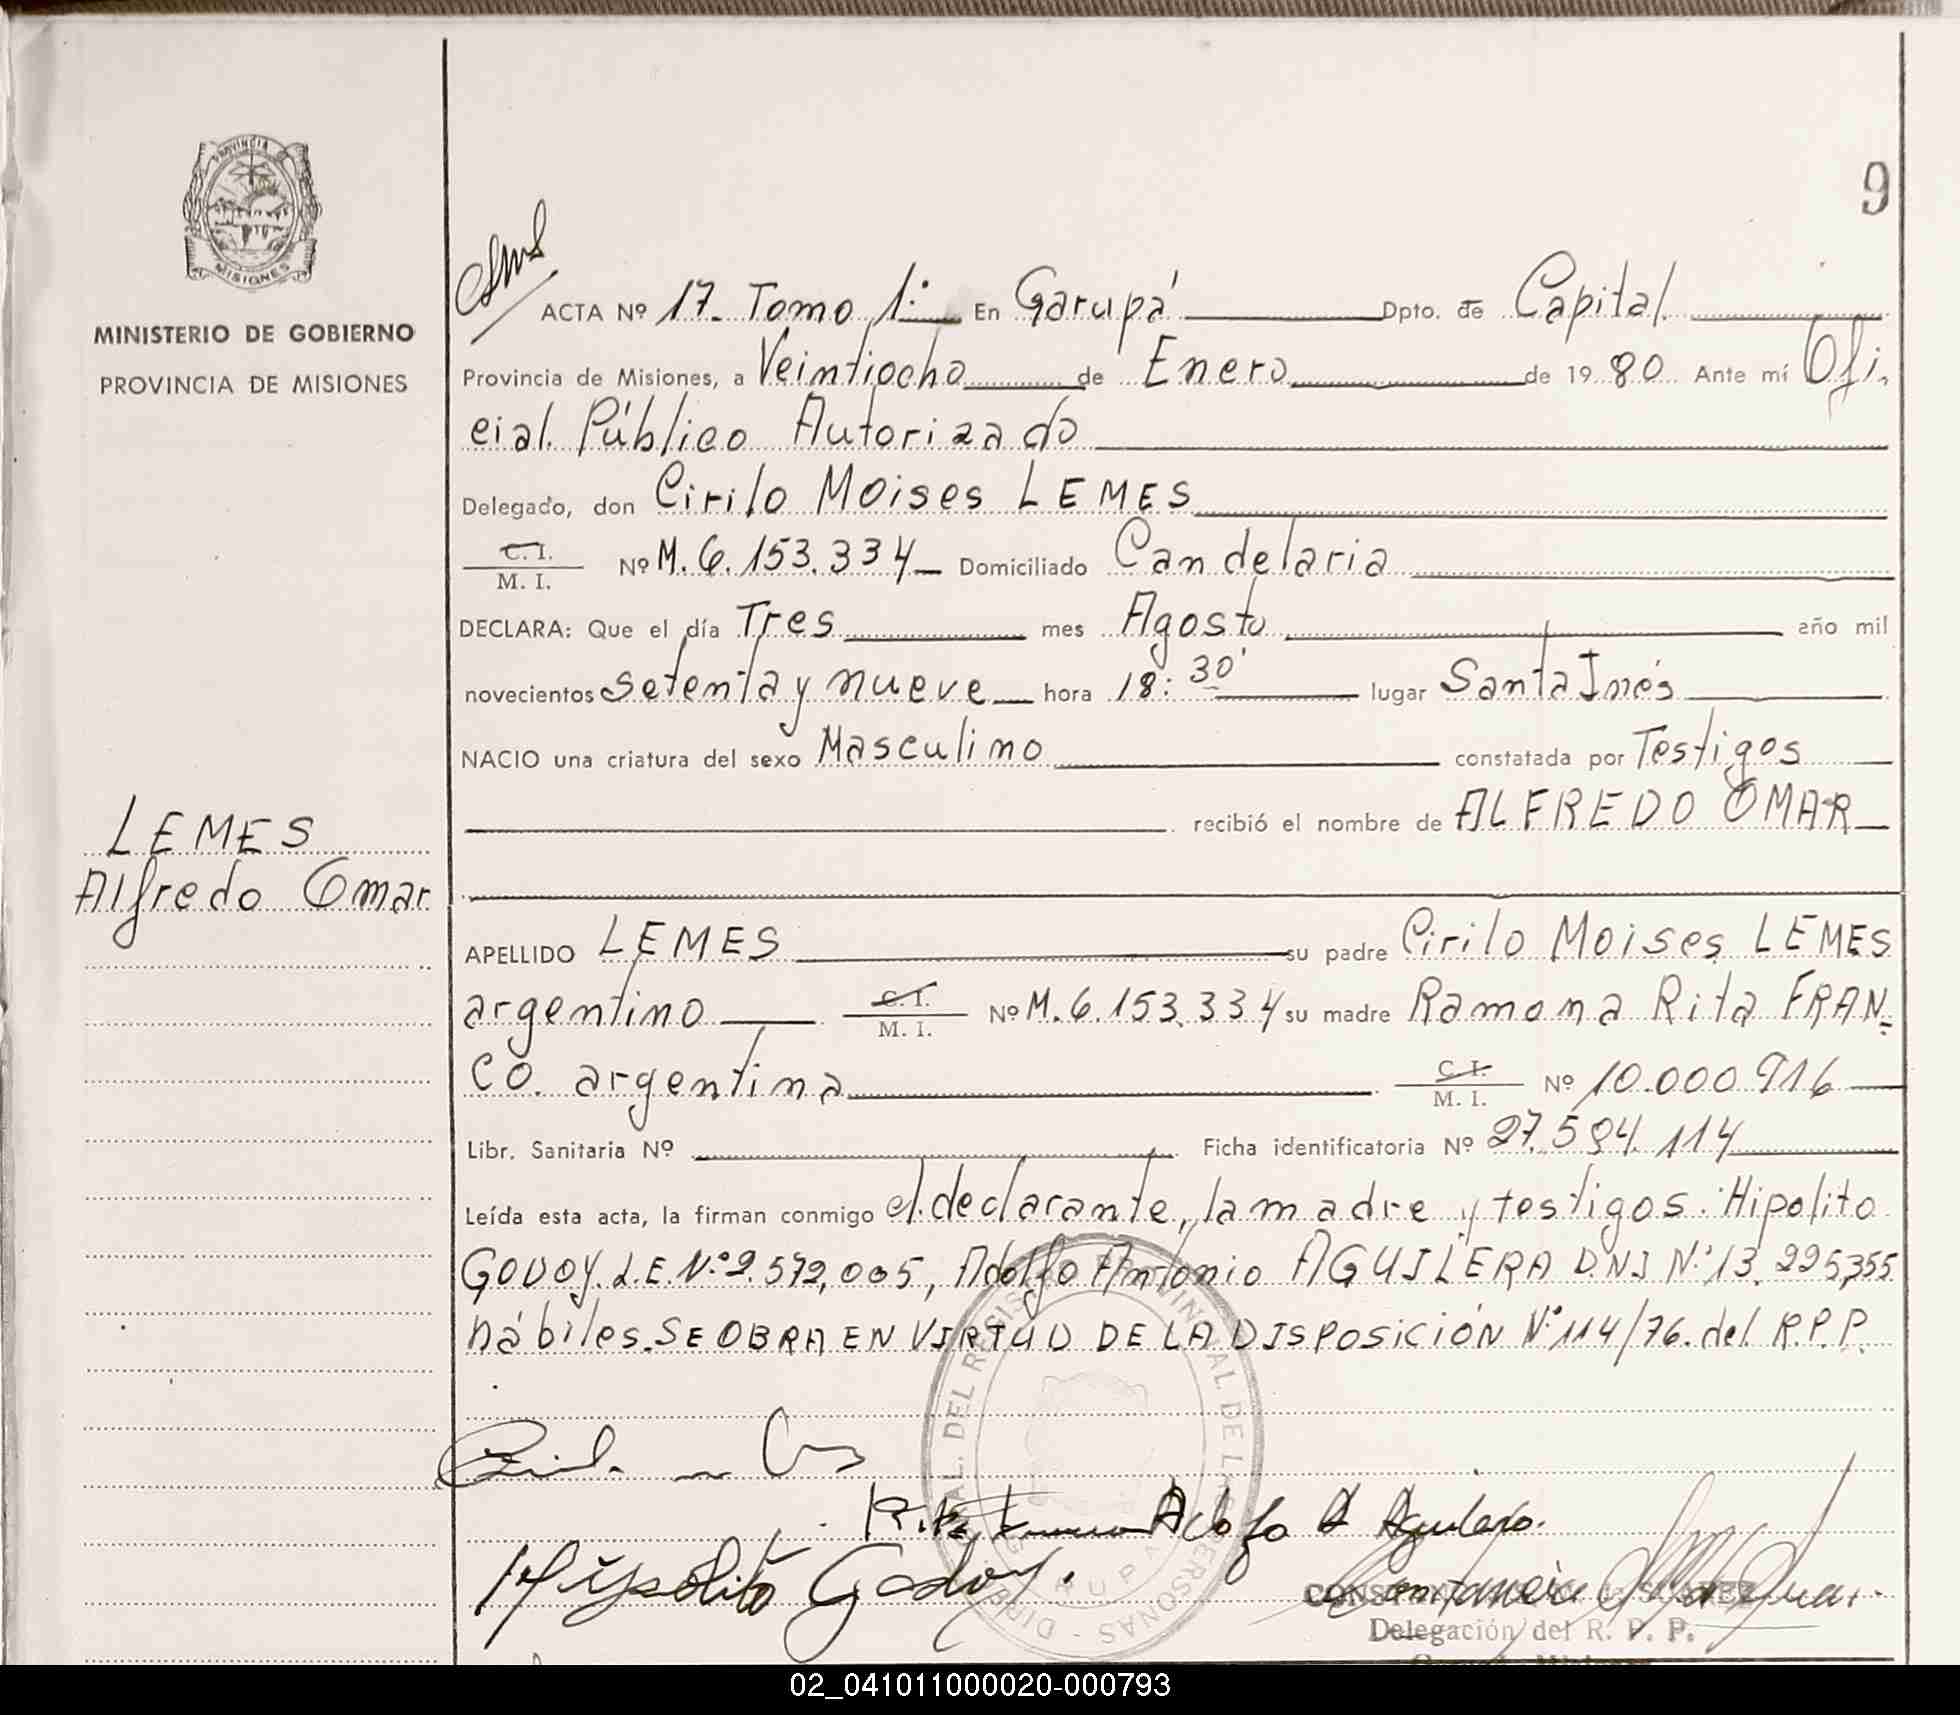 9
PROVINCIA
MISIONES
MINISTERIO DE GOBIERNO
PROVINCIA DE MISIONES
LEMES
Alfredo Omar
ACTA Nº 17. Tomo 1º En Garupá Dpto. de Capital.
Provincia de Misiones, a Veintiocho de Enero de 1980 Ante mí Ofi-
cial Público Autorizado
Delegado, don Cirilo Moises LEMES
C. I.
M. I. Nº M. 6.153.334 Domiciliado Candelaria
DECLARA: Que el día Tres mes Agosto año mil
novecientos setenta y nueve hora 18:30' lugar Santa Inés
NACIO una criatura del sexo Masculino constatada por Testigos
recibió el nombre de ALFREDO OMAR
APELLIDO LEMES su padre Cirilo Moises LEMES
argentino C. I. M. I. Nº M. 6.153.334 su madre Ramona Rita FRAN-
CO. argentina C. I. M. I. Nº 10.000.916
Libr. Sanitaria Nº Ficha identificatoria Nº 27.594.114
Leída esta acta, la firman conmigo el declarante, la madre y testigos: Hipolito
GODOY. L.E. Nº 2.572.005, Adolfo Antonio AGUILERA D.N.I Nº 13.225.355
hábiles. SE OBRA EN VIRTUD DE LA DISPOSICIÓN Nº 114/76. del R.P.P.
Adolfo A Aguilera.
Hipólito Godoy.
Delegación del R. P. P.
02_041011000020-000793